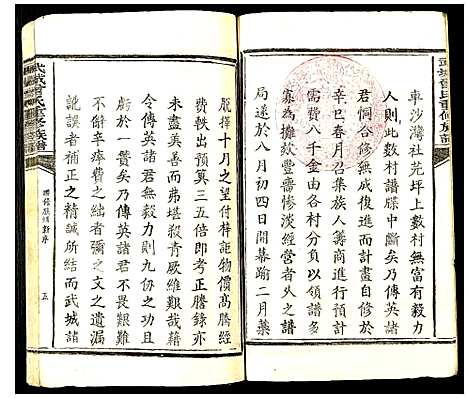 武城曾氏重修族譜
車沙灣社芫坪上數村無富有毅力
人則此數村譜牒中斷矣乃傳英諸
君恫合修無成復進而計畫自修於
辛巳春月召集族人籌商進行預算
需費八千金由各村分以領譜多
寡為攤款豐嗇慘淡經營者久之譜
局遂於八月初四日開幕踰二月藁
脫擇十月之望付梓詎物價高騰經
費超出預算三五倍即考正謄錄亦
未盡美善而弗堪殺青厥維艱哉藉
令傳英諸君無毅力則九仞之功且
虧於一簣矣乃傳英諸君不畏艱難
不辭辛瘁費之絀者彌之文之遺漏
訛誤者補正之精誠所結而武城諸
武城曾氏重修族譜
五